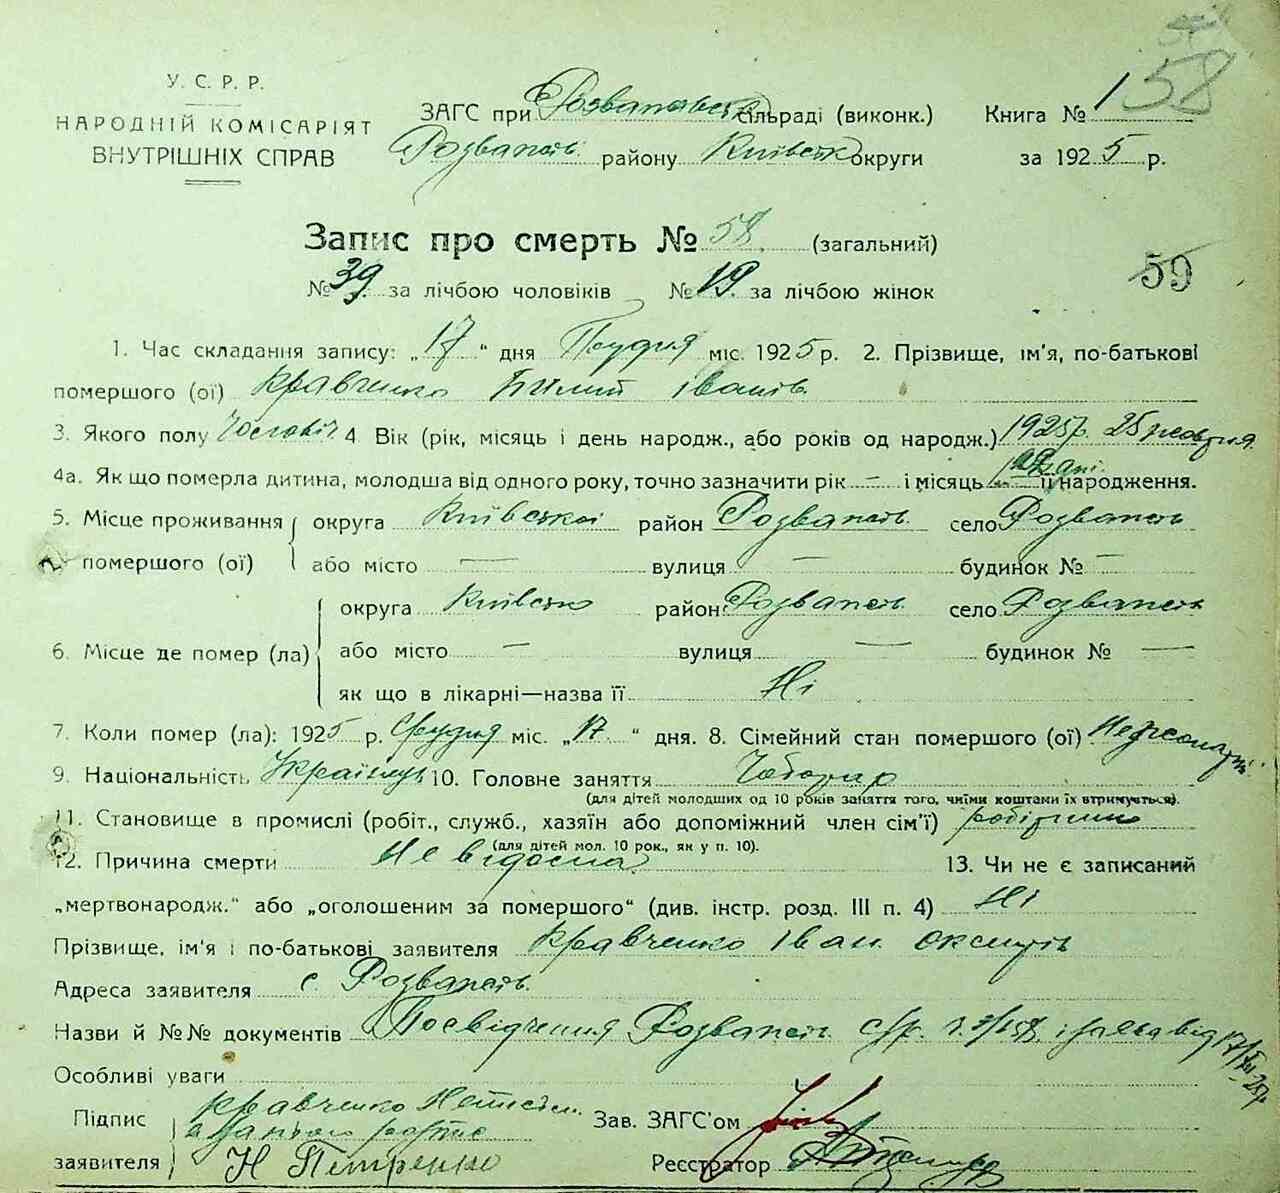 58
У. С. Р. Р.
НАРОДНІЙ КОМІСАРІЯТ
ВНУТРІШНІХ СПРАВ
ЗАГС при Розважівськ сільраді (виконк.)
Книга № 1
Розважів. району Київськ округи
за 1925 р.
Запис про смерть № 58. (загальний)
59
№ 39. за лічбою чоловіків № 19. за лічбою жінок
1. Час складання запису: „17" дня Грудня міс. 1925 р. 2. Прізвище, ім'я, по-батькові
помершого (ої) Кравченко Іванів.
3. Якого полу Чоловіч 4 Вік (рік, місяць і день народж., або років од народж.) 1925 р. 25 жовтня
4а. Як що померла дитина, молодша від одного року, точно зазначити рік — і місяць її народження.
5. Місце проживання помершого (ої) округа Київської район Розважів. село Розважів
або місто — вулиця — будинок № —
6. Місце де помер (ла) округа Київсько район Розважів. село Розважів
або місто — вулиця — будинок № —
як що в лікарні—назва її Ні
7. Коли помер (ла): 1925 р. Грудня міс. „17." дня. 8. Сімейний стан помершого (ої)
9. Національність Українець 10. Головне заняття Чоботар
(для дітей молодших од 10 років заняття того, чиїми коштами їх втримується).
11. Становище в промислі (робіт., служб., хазяїн або допоміжний член сім'ї)
(для дітей мол. 10 рок., як у п. 10).
12. Причина смерти Не відома 13. Чи не є записаний
„мертвонародж." або „оголошеним за помершого" (див. інстр. розд. III п. 4) Ні
Прізвище, ім'я і по-батькові заявителя Кравченко Іван
Адреса заявителя с. Розважів.
Назви й №№ документів Посвідчення Розважів.
Особливі уваги
Підпис заявителя Кравченко
Н Петренко
Зав. ЗАГС'ом
Реєстратор